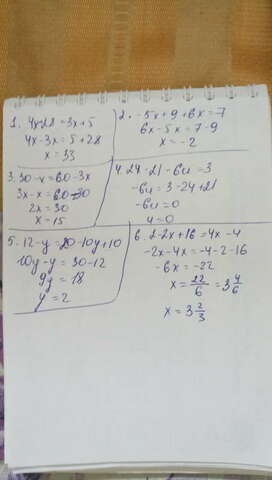 1. 4x-28=3x+5
4x-3x=5+28
x=33
2. -5x+9+6x=7
6x-5x=7-9
x=-2
3. 30-x=60-3x
3x-x=60-30
2x=30
x=15
4. 24-21-6u=3
-6u=3-24+21
-6u=0
u=0
5. 12-y=20-10y+10
10y-y=30-12
9y=18
y=2
6. 2-2x+16=4x-4
-2x-4x=-4-2-16
-6x=-22
x=22/6=3 4/6
x=3 2/3